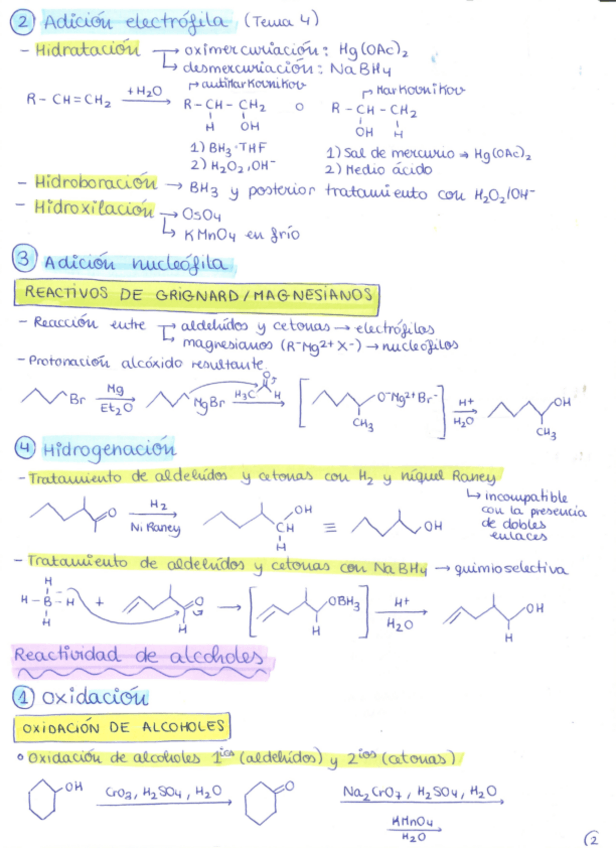 ② Adición electrófila (Tema 4)
- Hidratación → oximercuriación: Hg(OAc)₂
↳ desmercuriación: NaBH₄
antiMarkovnikov Markovnikov
R-CH=CH₂ +H₂O → R-CH-CH₂ o R-CH-CH₂
H OH OH H
1) BH₃·THF 1) Sal de mercurio → Hg(OAc)₂
2) H₂O₂, OH⁻ 2) Medio ácido
- Hidroboración → BH₃ y posterior tratamiento con H₂O₂/OH⁻
- Hidroxilación → OsO₄
↳ KMnO₄ en frío
③ Adición nucleófila
REACTIVOS DE GRIGNARD/MAGNESIANOS
- Reacción entre → aldehídos y cetonas → electrófilos
↳ magnesianos (R⁻Mg²⁺X⁻) → nucleófilos
- Protonación alcóxido resultante
Br Mg Et₂O MgBr H₃C O H O⁻Mg²⁺Br⁻ CH₃ H⁺ H₂O OH CH₃
④ Hidrogenación
- Tratamiento de aldehídos y cetonas con H₂ y níquel Raney
↳ incompatible
con la presencia
de dobles
enlaces
O H₂ Ni Raney OH CH H ≡ OH
- Tratamiento de aldehídos y cetonas con NaBH₄ → quimioselectiva
H
H-B-H + O H → OBH₃ H H⁺ H₂O OH H
H
Reactividad de alcoholes
① Oxidación
OXIDACIÓN DE ALCOHOLES
• Oxidación de alcoholes 1ⁱᵒˢ (aldehídos) y 2ⁱᵒˢ (cetonas)
OH CrO₃, H₂SO₄, H₂O O Na₂CrO₇, H₂SO₄, H₂O
KMnO₄
H₂O
2